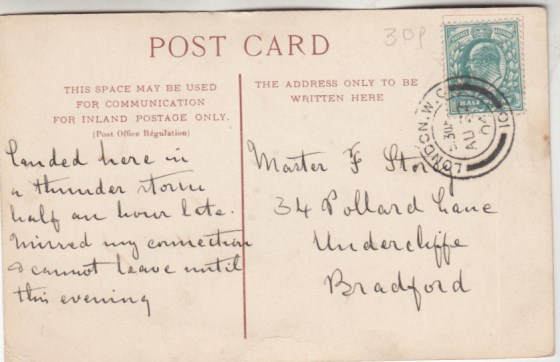 30p
POST CARD
THIS SPACE MAY BE USED
FOR COMMUNICATION
FOR INLAND POSTAGE ONLY.
(Post Office Regulation)
THE ADDRESS ONLY TO BE
WRITTEN HERE
HALF
LONDON. W.C.
AU
Landed here in
a thunder storm
half an hour late.
Missed my connection
& cannot leave until
this evening
Master F Storey
34 Pollard Lane
Undercliffe
Bradford